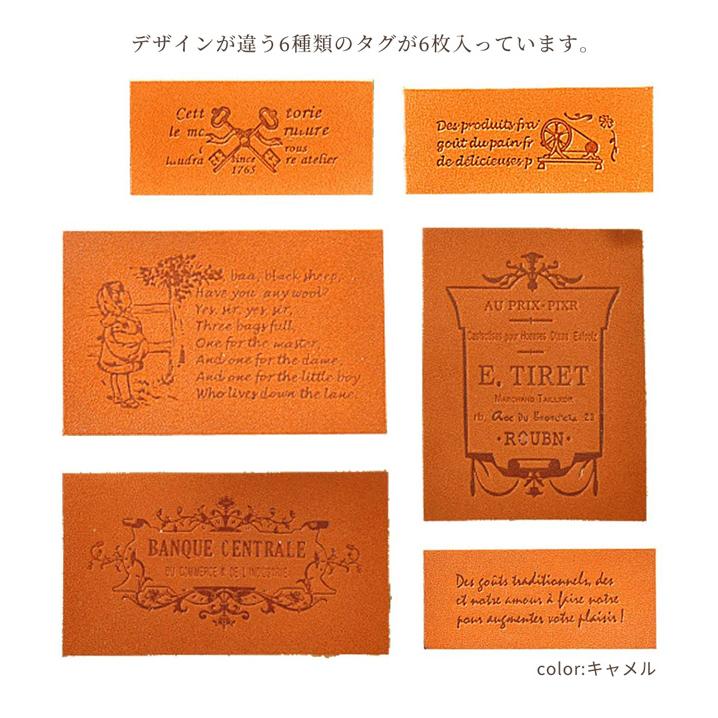 デザインが違う6種類のタグが6枚入っています。
Cett torie
le mo ruture
rous
laudra Since re atelier
1765
Des produits fra
goût du pain fr
de délicieuses p
baa, black sheep,
Have you any wool?
Yes, sir, yes sir,
Three bags full,
One for the master,
And one for the dame,
And one for the little boy
Who lives down the lane.
AU PRIX-PIXR
E. TIRET
MARCHAND TAILLEUR
23
ROUBN
BANQUE CENTRALE
DU COMMERCE & DE L'INDUSTRIE
Des goûts traditionnels, des
et notre amour à faire notre
pour augmenter votre plaisir!
color:キャメル